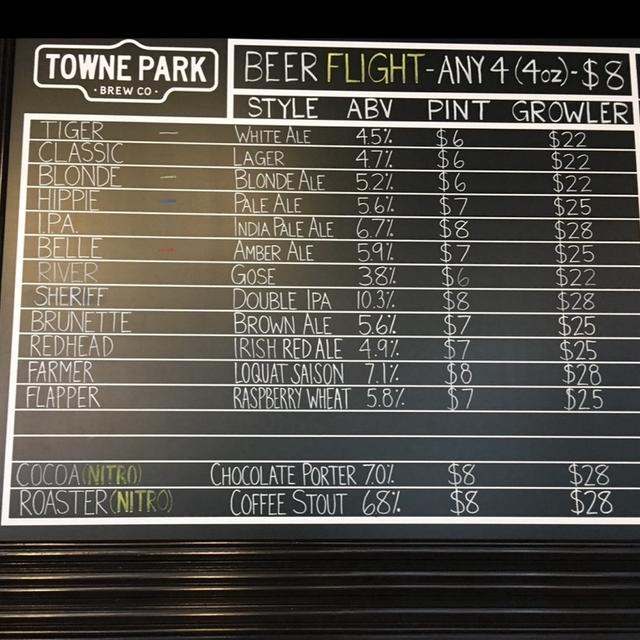 TOWNE PARK
· BREW CO ·
BEER FLIGHT - ANY 4 (4oz) - $8
STYLE ABV PINT GROWLER
TIGER — WHITE ALE 4.5% $6 $22
CLASSIC LAGER 4.7% $6 $22
BLONDE — BLONDE ALE 5.2% $6 $22
HIPPIE — PALE ALE 5.6% $7 $25
I.P.A. INDIA PALE ALE 6.7% $8 $28
BELLE — AMBER ALE 5.9% $7 $25
RIVER GOSE 3.8% $6 $22
SHERIFF DOUBLE IPA 10.3% $8 $28
BRUNETTE BROWN ALE 5.6% $7 $25
REDHEAD IRISH RED ALE 4.9% $7 $25
FARMER LOQUAT SAISON 7.1% $8 $28
FLAPPER RASPBERRY WHEAT 5.8% $7 $25
COCOA (NITRO) CHOCOLATE PORTER 7.0% $8 $28
ROASTER (NITRO) COFFEE STOUT 6.8% $8 $28